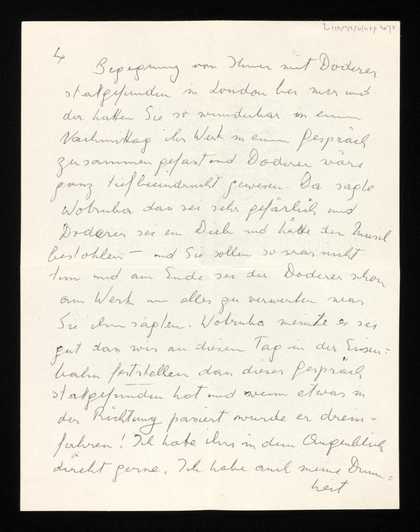 4
Begegnung von Ihnen mit Doderer
stattgefunden in London bei mir und
da hätten Sie so wunderbar in einem
Nachmittag ihr Werk in einem Gespräch
zusammengefasst und Doderer wäre
ganz tief beeindruckt gewesen. Da sagte
Wotruba das sei sehr gefärlich und
Doderer sei ein Dieb und hätte den Musil
bestohlen – und Sie sollen so was nicht
tun und am Ende sei der Doderer schon
am Werk um alles zu verwerten was
Sie ihm sagten. Wotruba meinte es sei
gut dass wir an diesem Tag in der Eisen-
bahn feststellen dass dieses Gespräch
stattgefunden hat und wenn etwas in
der Richtung passiert würde er drein-
fahren! Ich habe ihn in dem Augenblick
direkt gerne. Ich habe auch meine Dumm-
heit